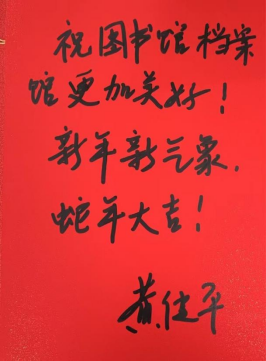 祝图书馆档案
馆更加美好！
新年新气象，
蛇年大吉！
黄仕平